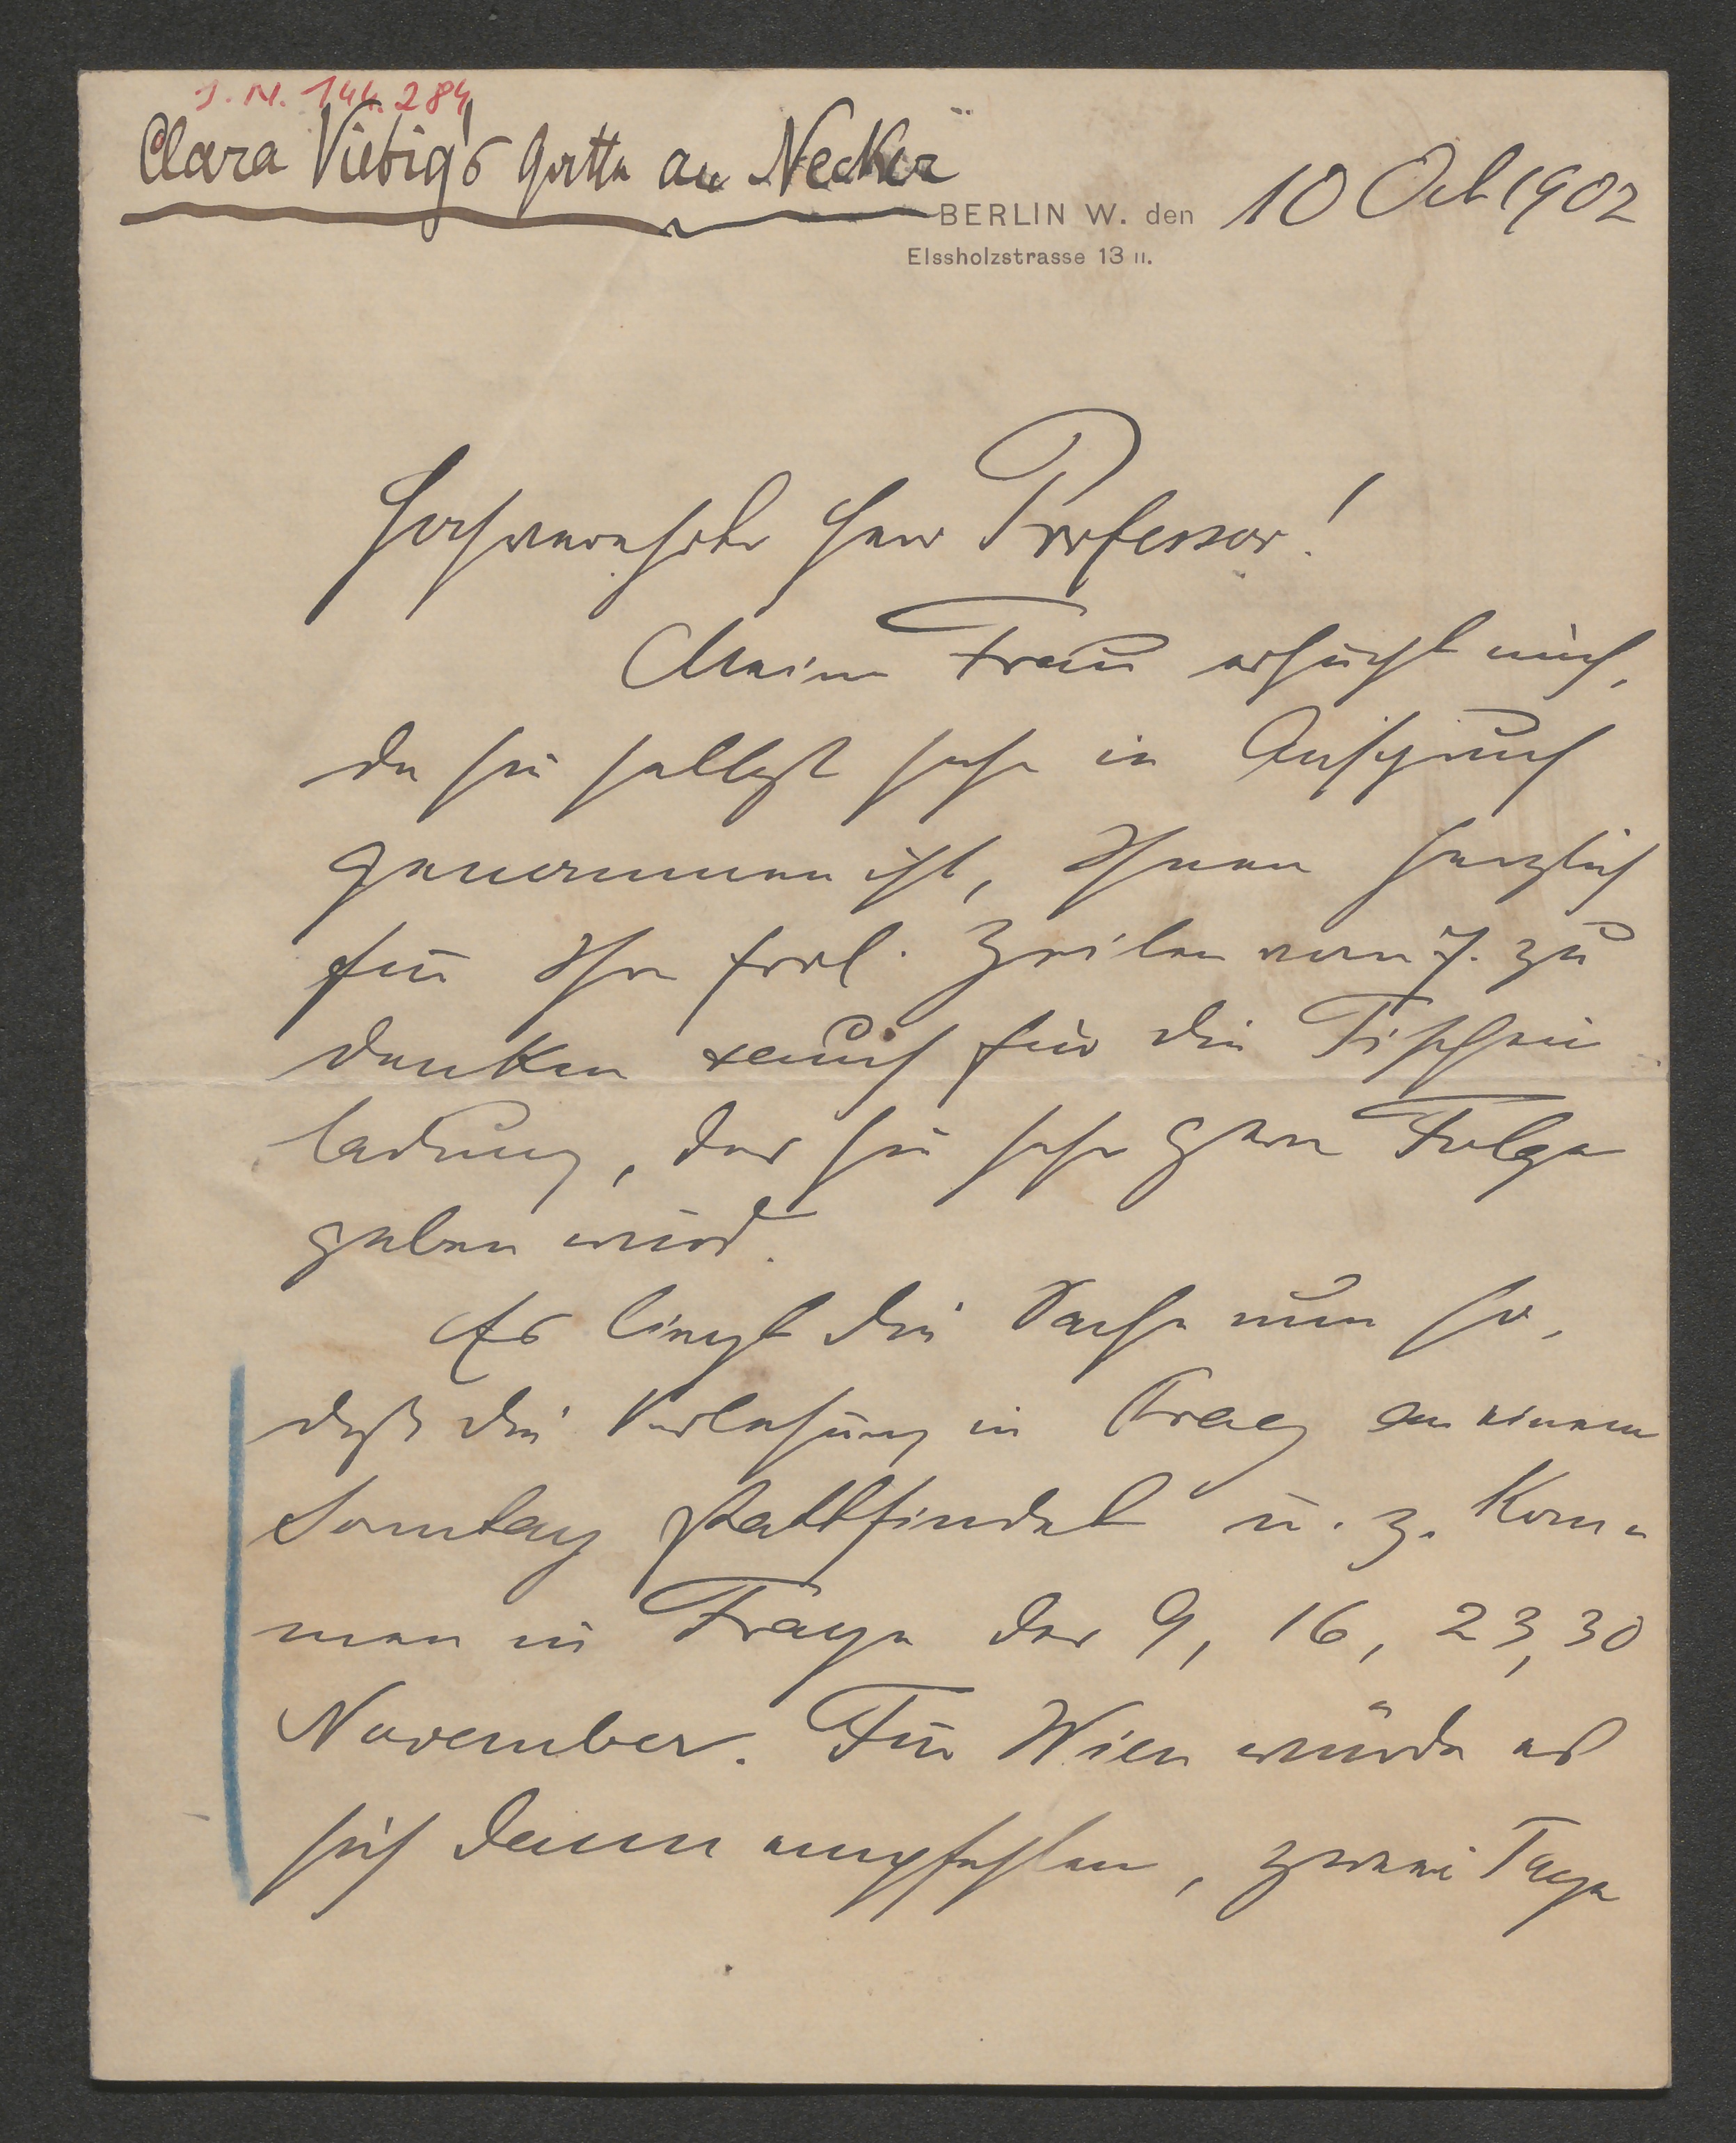 J. N. 144.284
Clara Viebig's Gatte an Necker
BERLIN W. den 10 Oct 1902
Elssholzstrasse 13 II.
Hochverehrter Herr Professor!
Meine Frau ersucht mich,
da sie selbst sehr in Anspruch
genommen ist, Ihnen herzlich
für Ihre frdl. Zeilen vom 7. zu
danken auch für die Tischein
ladung, der sie sehr gern Folge
geben wird.
Es liegt die Sache nun so,
daß die Vorlesung in Prag an einem
Sonntag stattfindet u. z. kom-
men in Frage der 9, 16, 23, 30
November. Für Wien würde es
sich dann empfehlen, zwei Tage